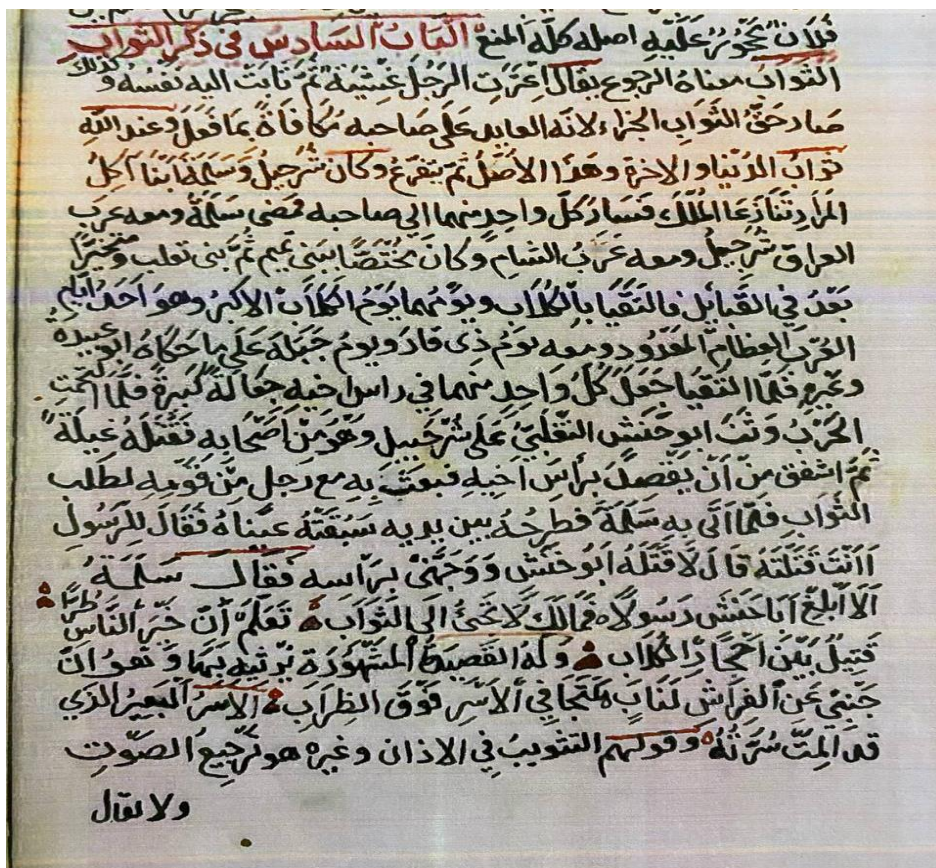 فلان يحجور عليه اصله كله المنع الباب السادس في ذكر الثواب
الثواب معناه الرجوع يقال اعترت الرجل غشية ثم ثابت اليه نفسه وكذلك
صار حق الثواب الجزاء لانه العايد على صاحبه مكافاة بما فعل وعند الله
ثواب الدنيا والاخرة وهذا الاصل ثم يتفرع وكان شرحبيل وسلمة ابنا آكل
المرار تنازعا الملك فسار كل واحد منهما الي صاحبه فمضى سلمة ومعه عرب
العراق شرحبيل ومعه عرب الشام وكان مختصا ببني تميم ثم بني تغلب ومتخيرا
بعد في القبايل فالتقيا بالكلاب ويومهما يوم الكلاب الاكبر وهو احد ايام
العرب العظام المعدود ومعه يوم ذي قار ويوم جبلة على ما حكاه ابو عبيدة
وغيره فلما التقيا جعل كل واحد منهما في راس اخيه جعالة كبيرة فلما التحمت
الحرب وثب ابو حنش التغلبي على شرحبيل وهو من اصحابه فقتله غيلة
ثم اشفق من ان يقصد براس اخيه فبعث به مع رجل من قومه لطلب
الثواب فلما اتى به سلمة فطرحه بين يديه سبقته عيناه فقال للرسول
اانت قتلته قال لا قتله ابو حنش ووجهني براسه فقال سلمة
الا ابلغ ابا حنش رسولا فمالك لا تجئ الى الثواب تعلم ان خير الناس طرا
قتيل بين احجار الكلاب وله القصيدة المشهورة يرثيه بها وهو ان
جنبي عن الفراش لناب كتجافي الاسر فوق الظراب الاسر البعير الذي
قد المت سرته وقولهم التثويب في الاذان وغيره هو ترجيع الصوت
ولا يقال